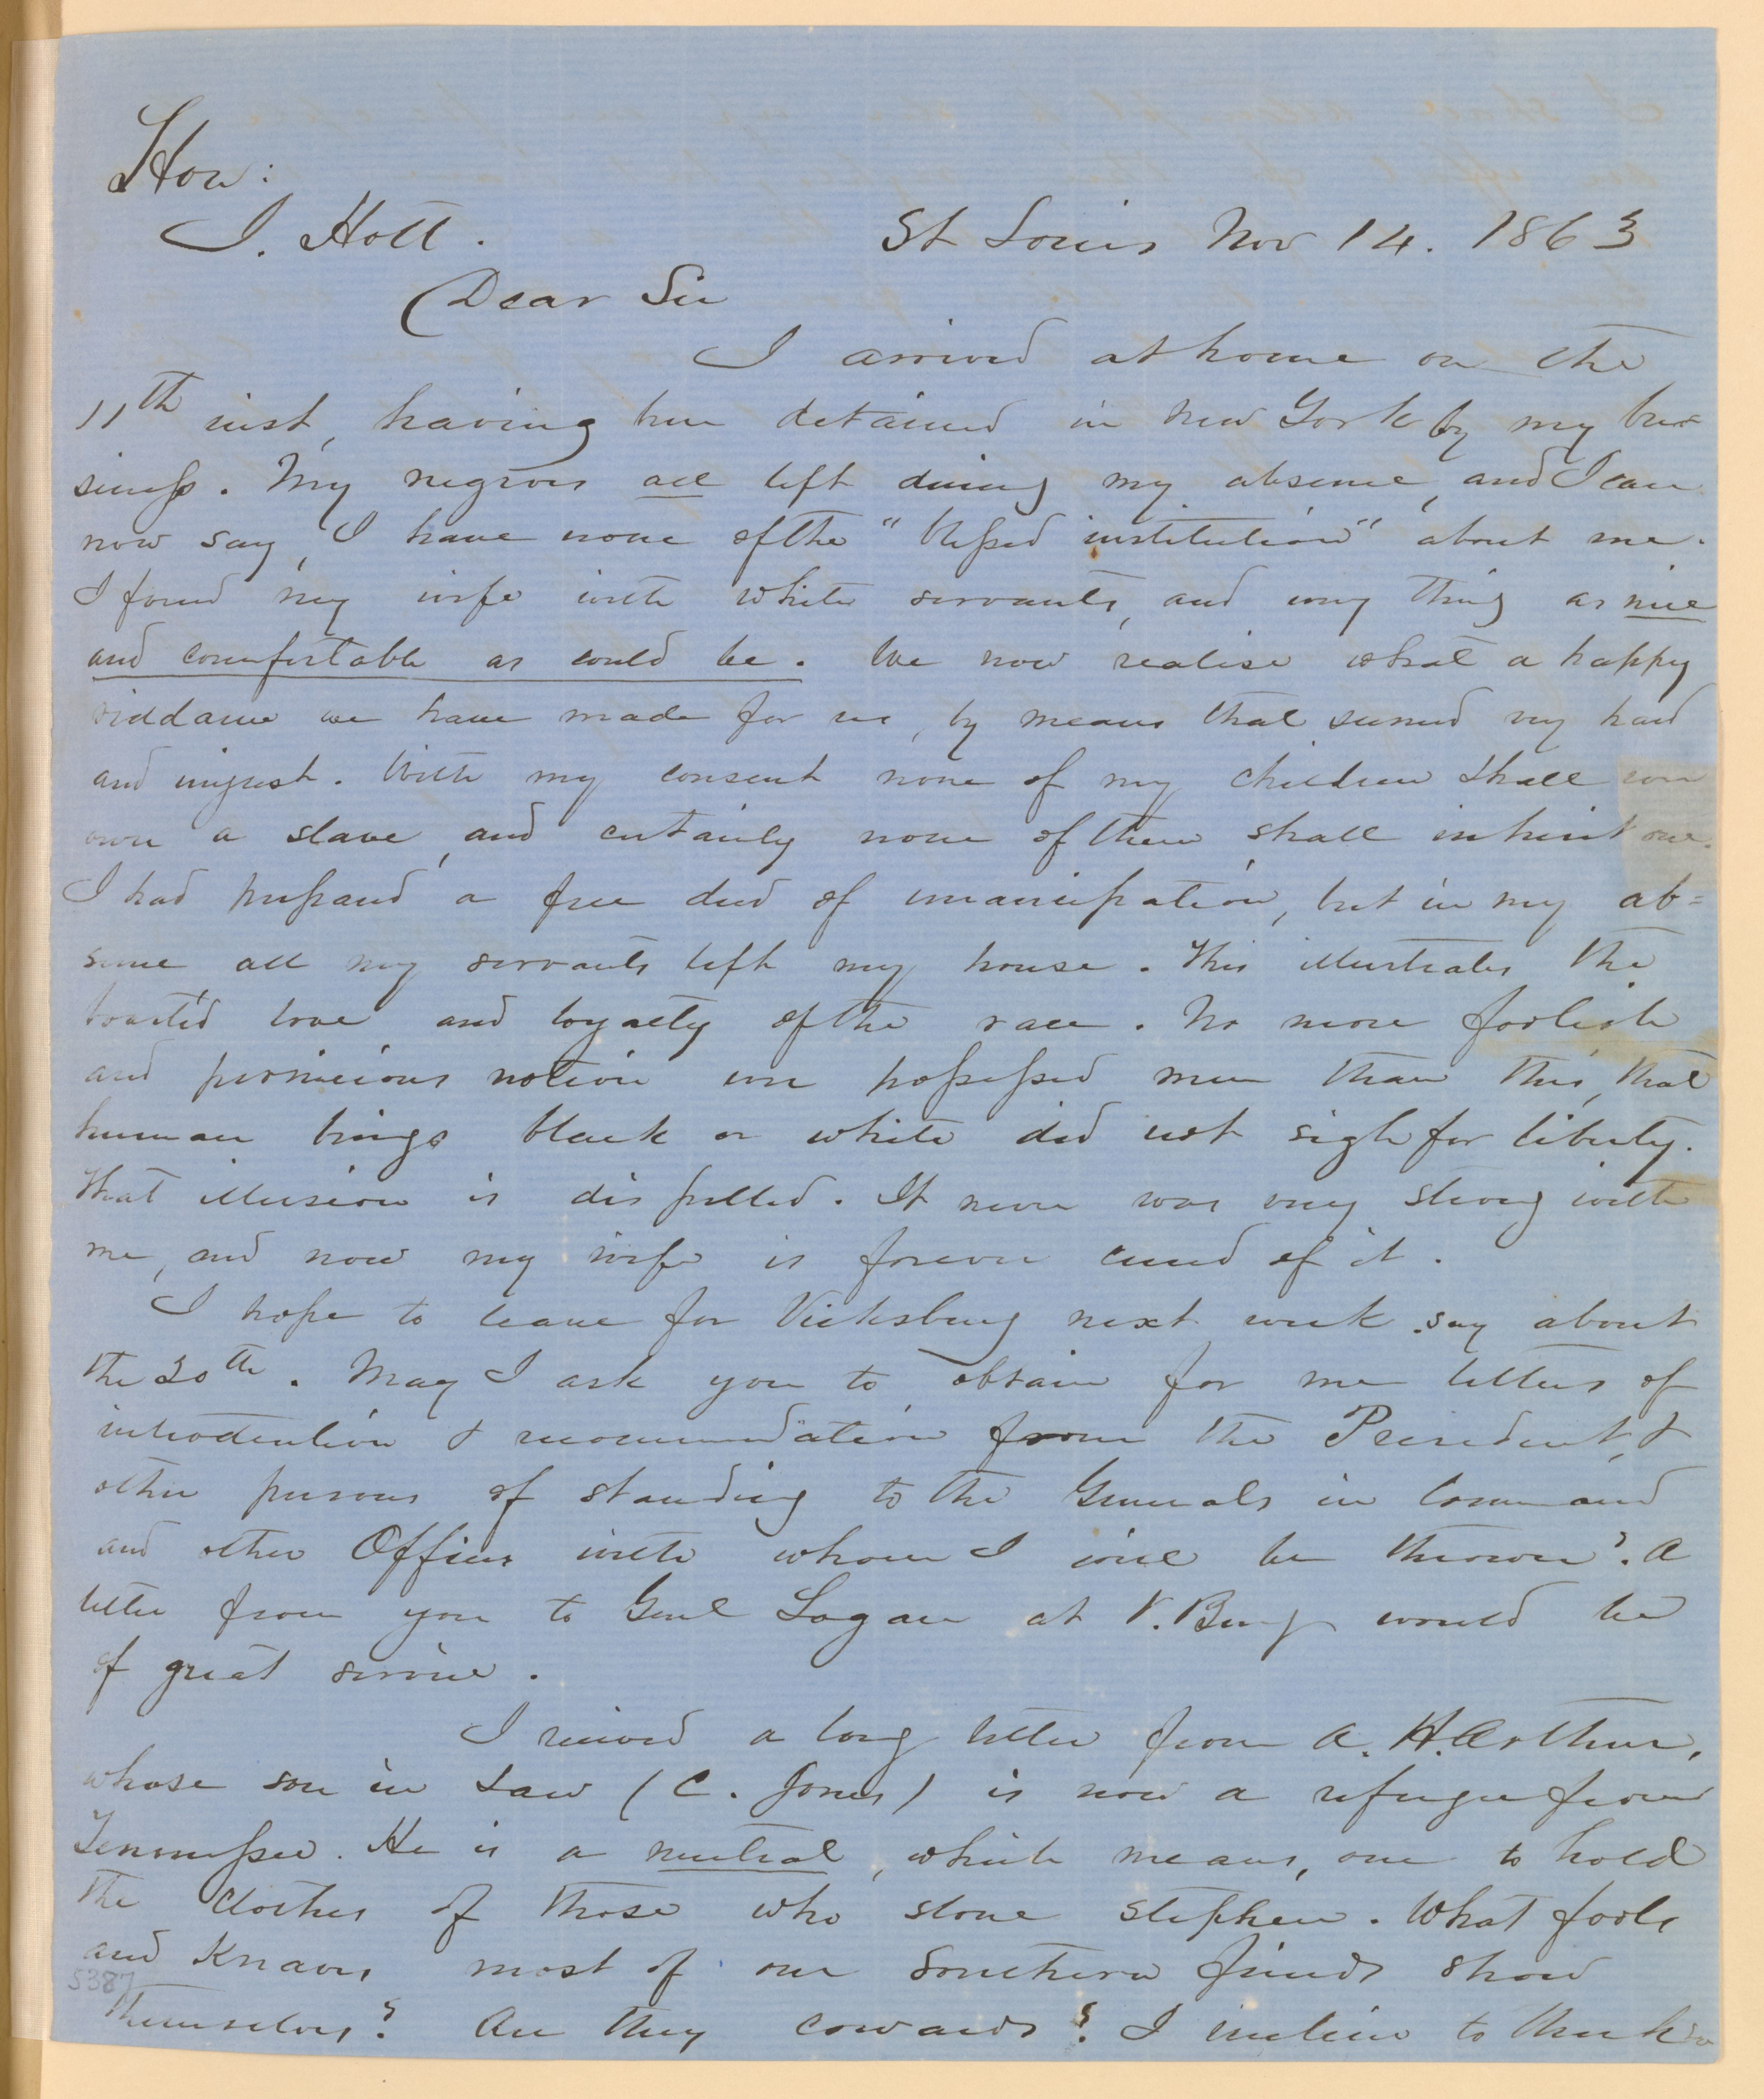 Hon:
J. Holt.
St Louis Nov 14. 1863
Dear Sir
I arrived at home on the
11th inst, having been detained in New York by my bu-
siness. My negroes all left during my absence, and I can
now say, I have none of the "blessed institution" about me.
I found my wife with white servants, and every thing as nice
and comfortable as could be. We now realise what a happy
riddance we have made for us, by means that seemed very hard
and unjust. With my consent none of my children shall ever
own a slave, and certainly none of them shall inherit one.
I had prepared a free deed of emancipation, but in my ab=
sence all my servants left my house. This illustrates the
boasted love and loyalty of the race. No more foolish
and pernicious notion ever possessed men than this, that
human beings black or white did not sigh for liberty.
That illusion is dispelled. It never was very strong with
me, and now my wife is forever cured of it.
I hope to leave for Vicksburg next week say about
the 20th. May I ask you to obtain for me letters of
introduction & recommendation from the President, &
other persons of standing to the Generals in Command
and other Officers with whom I will be thrown?. A
letter from you to Genl Logan at V.Burg would be
of great service.
I received a long letter from A. H. Arthur,
whose son in Law (C. Jones) is now a refugee from
Tennessee. He is a neutral, which means, one to hold
the clothes of those who stone Stephen. What fools
and Knaves most of our Southern friends show
5387
themselves? Are they cowards? I incline to think so